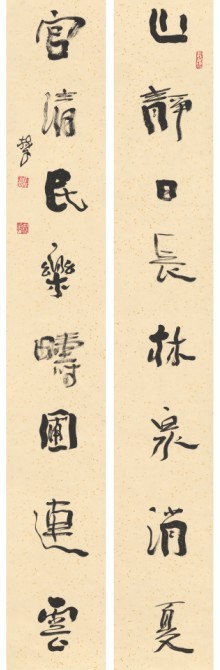 山靜日長林泉消夏
官清民樂疇圃連雲